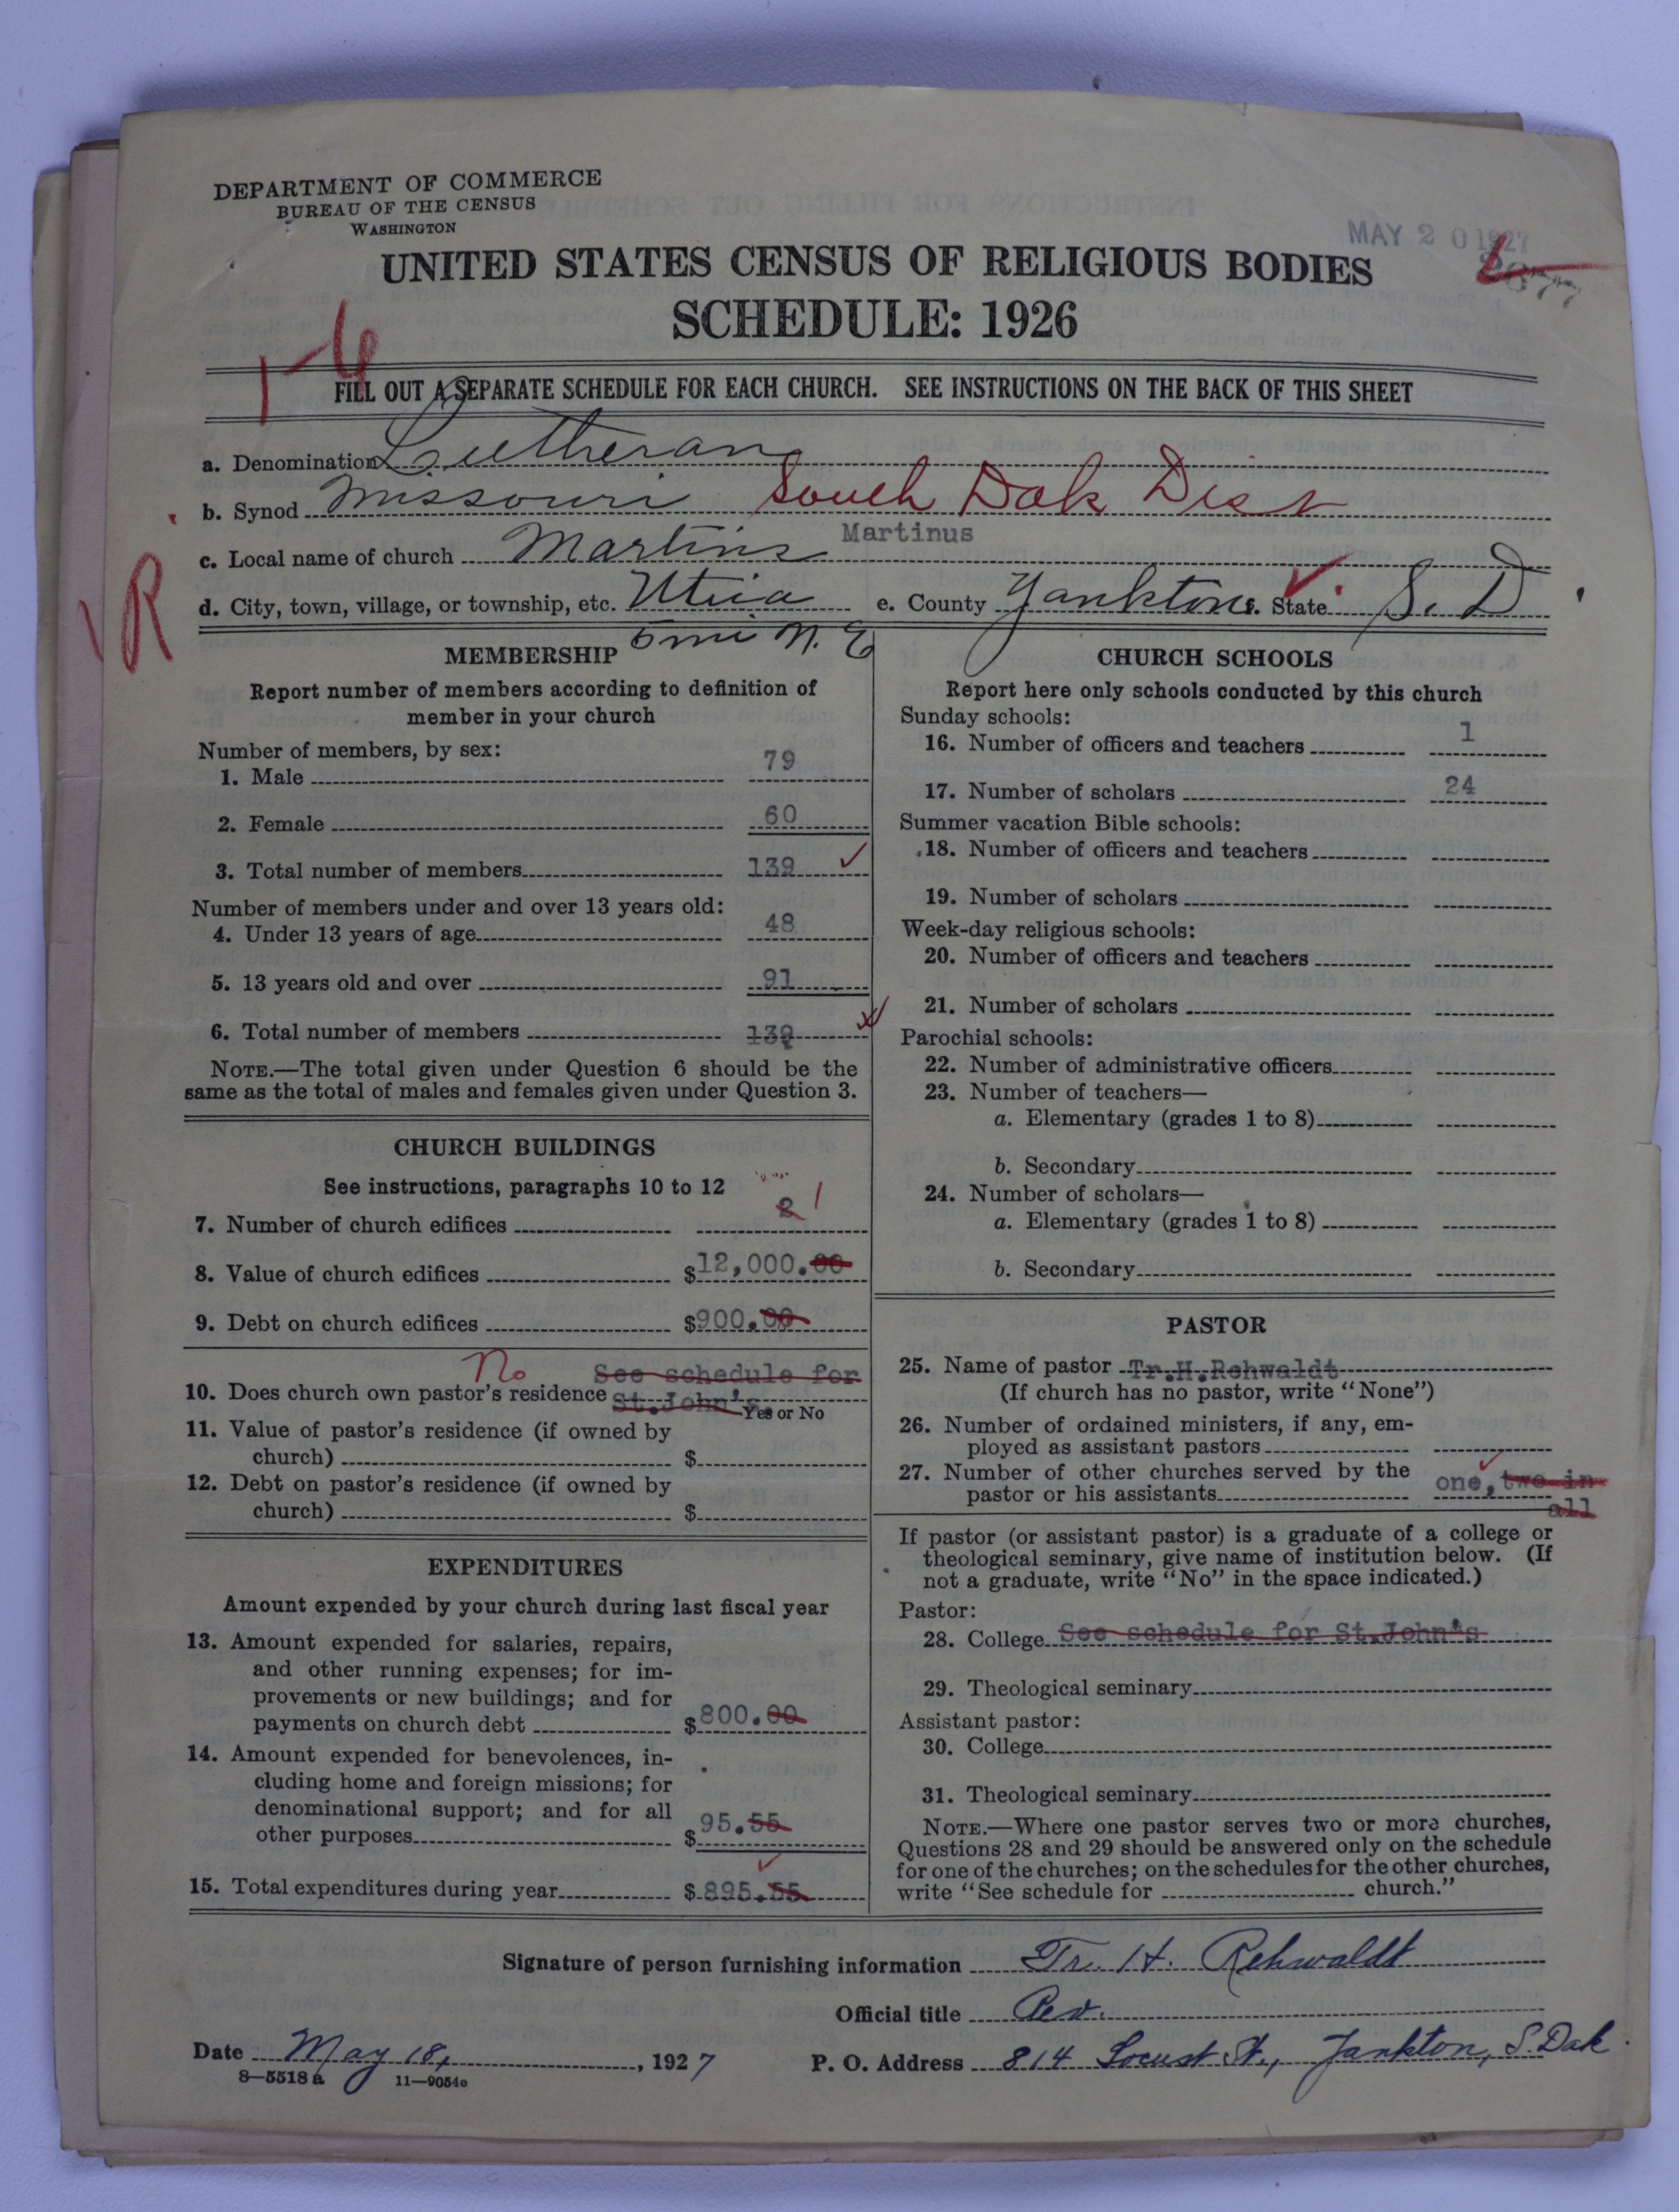 DEPARTMENT OF COMMERCE
BUREAU OF THE CENSUS
WASHINGTON
MAY 20 1927
UNITED STATES CENSUS OF RELIGIOUS BODIES
SCHEDULE: 1926
1-6
FILL OUT A SEPARATE SCHEDULE FOR EACH CHURCH. SEE INSTRUCTIONS ON THE BACK OF THIS SHEET
a. Denomination Lutheran
b. Synod Missouri South Dak Dist
c. Local name of church Martins Martinus
d. City, town, village, or township, etc. Utica e. County Yankton f. State S. D
R
5 mi N. E
MEMBERSHIP
Report number of members according to definition of
member in your church
Number of members, by sex:
1. Male 79
2. Female 60
3. Total number of members 139
Number of members under and over 13 years old:
4. Under 13 years of age 48
5. 13 years old and over 91
6. Total number of members 139
NOTE.—The total given under Question 6 should be the
same as the total of males and females given under Question 3.
CHURCH BUILDINGS
See instructions, paragraphs 10 to 12
7. Number of church edifices 2 1
8. Value of church edifices $12,000.00
9. Debt on church edifices $900.00
No See schedule for
10. Does church own pastor's residence St.John's.
Yes or No
11. Value of pastor's residence (if owned by
church) $
12. Debt on pastor's residence (if owned by
church) $
EXPENDITURES
Amount expended by your church during last fiscal year
13. Amount expended for salaries, repairs,
and other running expenses; for im-
provements or new buildings; and for
payments on church debt $800.00
14. Amount expended for benevolences, in-
cluding home and foreign missions; for
denominational support; and for all
other purposes $95.55
15. Total expenditures during year $895.55
CHURCH SCHOOLS
Report here only schools conducted by this church
Sunday schools:
16. Number of officers and teachers 1
17. Number of scholars 24
Summer vacation Bible schools:
18. Number of officers and teachers
19. Number of scholars
Week-day religious schools:
20. Number of officers and teachers
21. Number of scholars
Parochial schools:
22. Number of administrative officers
23. Number of teachers—
a. Elementary (grades 1 to 8)
b. Secondary
24. Number of scholars—
a. Elementary (grades 1 to 8)
b. Secondary
PASTOR
25. Name of pastor Tr.H.Rehwaldt
(If church has no pastor, write "None")
26. Number of ordained ministers, if any, em-
ployed as assistant pastors
27. Number of other churches served by the
pastor or his assistants one, two in
all
If pastor (or assistant pastor) is a graduate of a college or
theological seminary, give name of institution below. (If
not a graduate, write "No" in the space indicated.)
Pastor:
28. College See schedule for St.John's
29. Theological seminary
Assistant pastor:
30. College
31. Theological seminary
NOTE.—Where one pastor serves two or more churches,
Questions 28 and 29 should be answered only on the schedule
for one of the churches; on the schedules for the other churches,
write "See schedule for church."
Signature of person furnishing information Tr. H. Rehwaldt
Official title Rev.
Date May 18, , 1927 P. O. Address 814 Locust St., Yankton, S. Dak.
8—5518 a 11—9054c